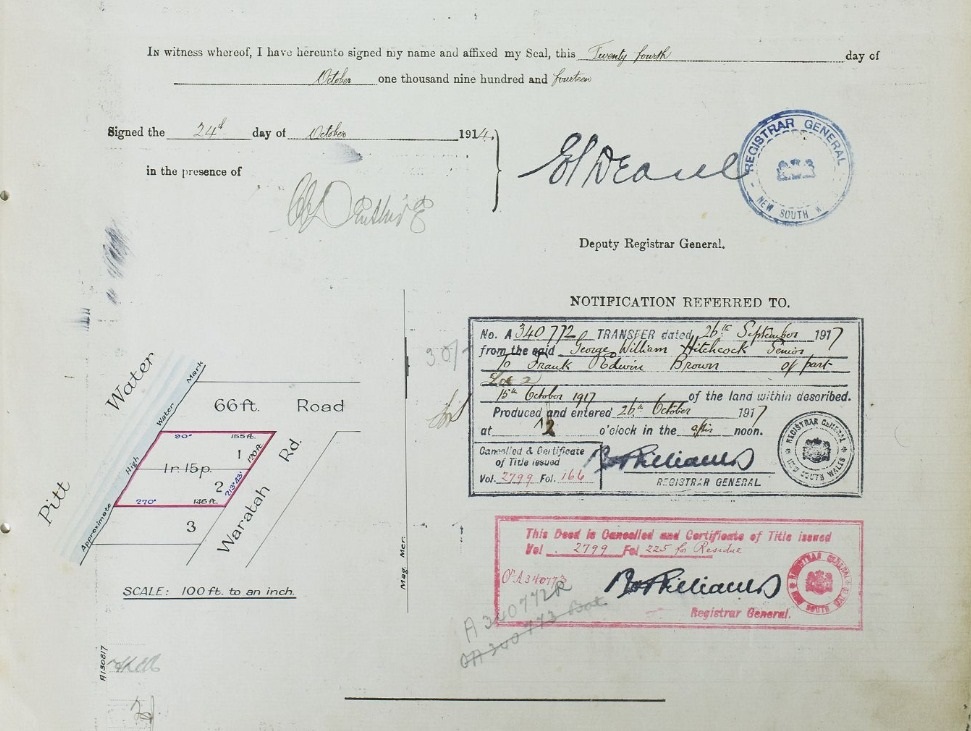 In witness whereof, I have hereunto signed my name and affixed my Seal, this Twenty fourth day of
October one thousand nine hundred and fourteen
Signed the 24th day of October 1914.
in the presence of
REGISTRAR GENERAL
NEW SOUTH W
Deputy Registrar General.
NOTIFICATION REFERRED TO.
No. A 340772 TRANSFER dated 26th September 1917
from the said George William Hitchcock Senior
to Frank Edwin Brown of part
Lot 2
15th October 1917 of the land within described.
Produced and entered 26th October 1917
at 12 o'clock in the after noon.
Cancelled & Certificate
of Title issued
Vol. 2799 Fol. 166
REGISTRAR GENERAL
REGISTRAR GENERAL
NEW SOUTH WALES
This Deed is Cancelled and Certificate of Title issued
Vol. 2799 Fol 225 for Residue
A340772
Registrar General.
A340772R
Pitt Water
Approximate High Water Mark
66 ft. Road
90° 155 ft.
1
1r. 15p.
2
270° 146 ft.
3
Waratah Rd.
SCALE: 100 ft. to an inch.
Mag. Mer.
A130817